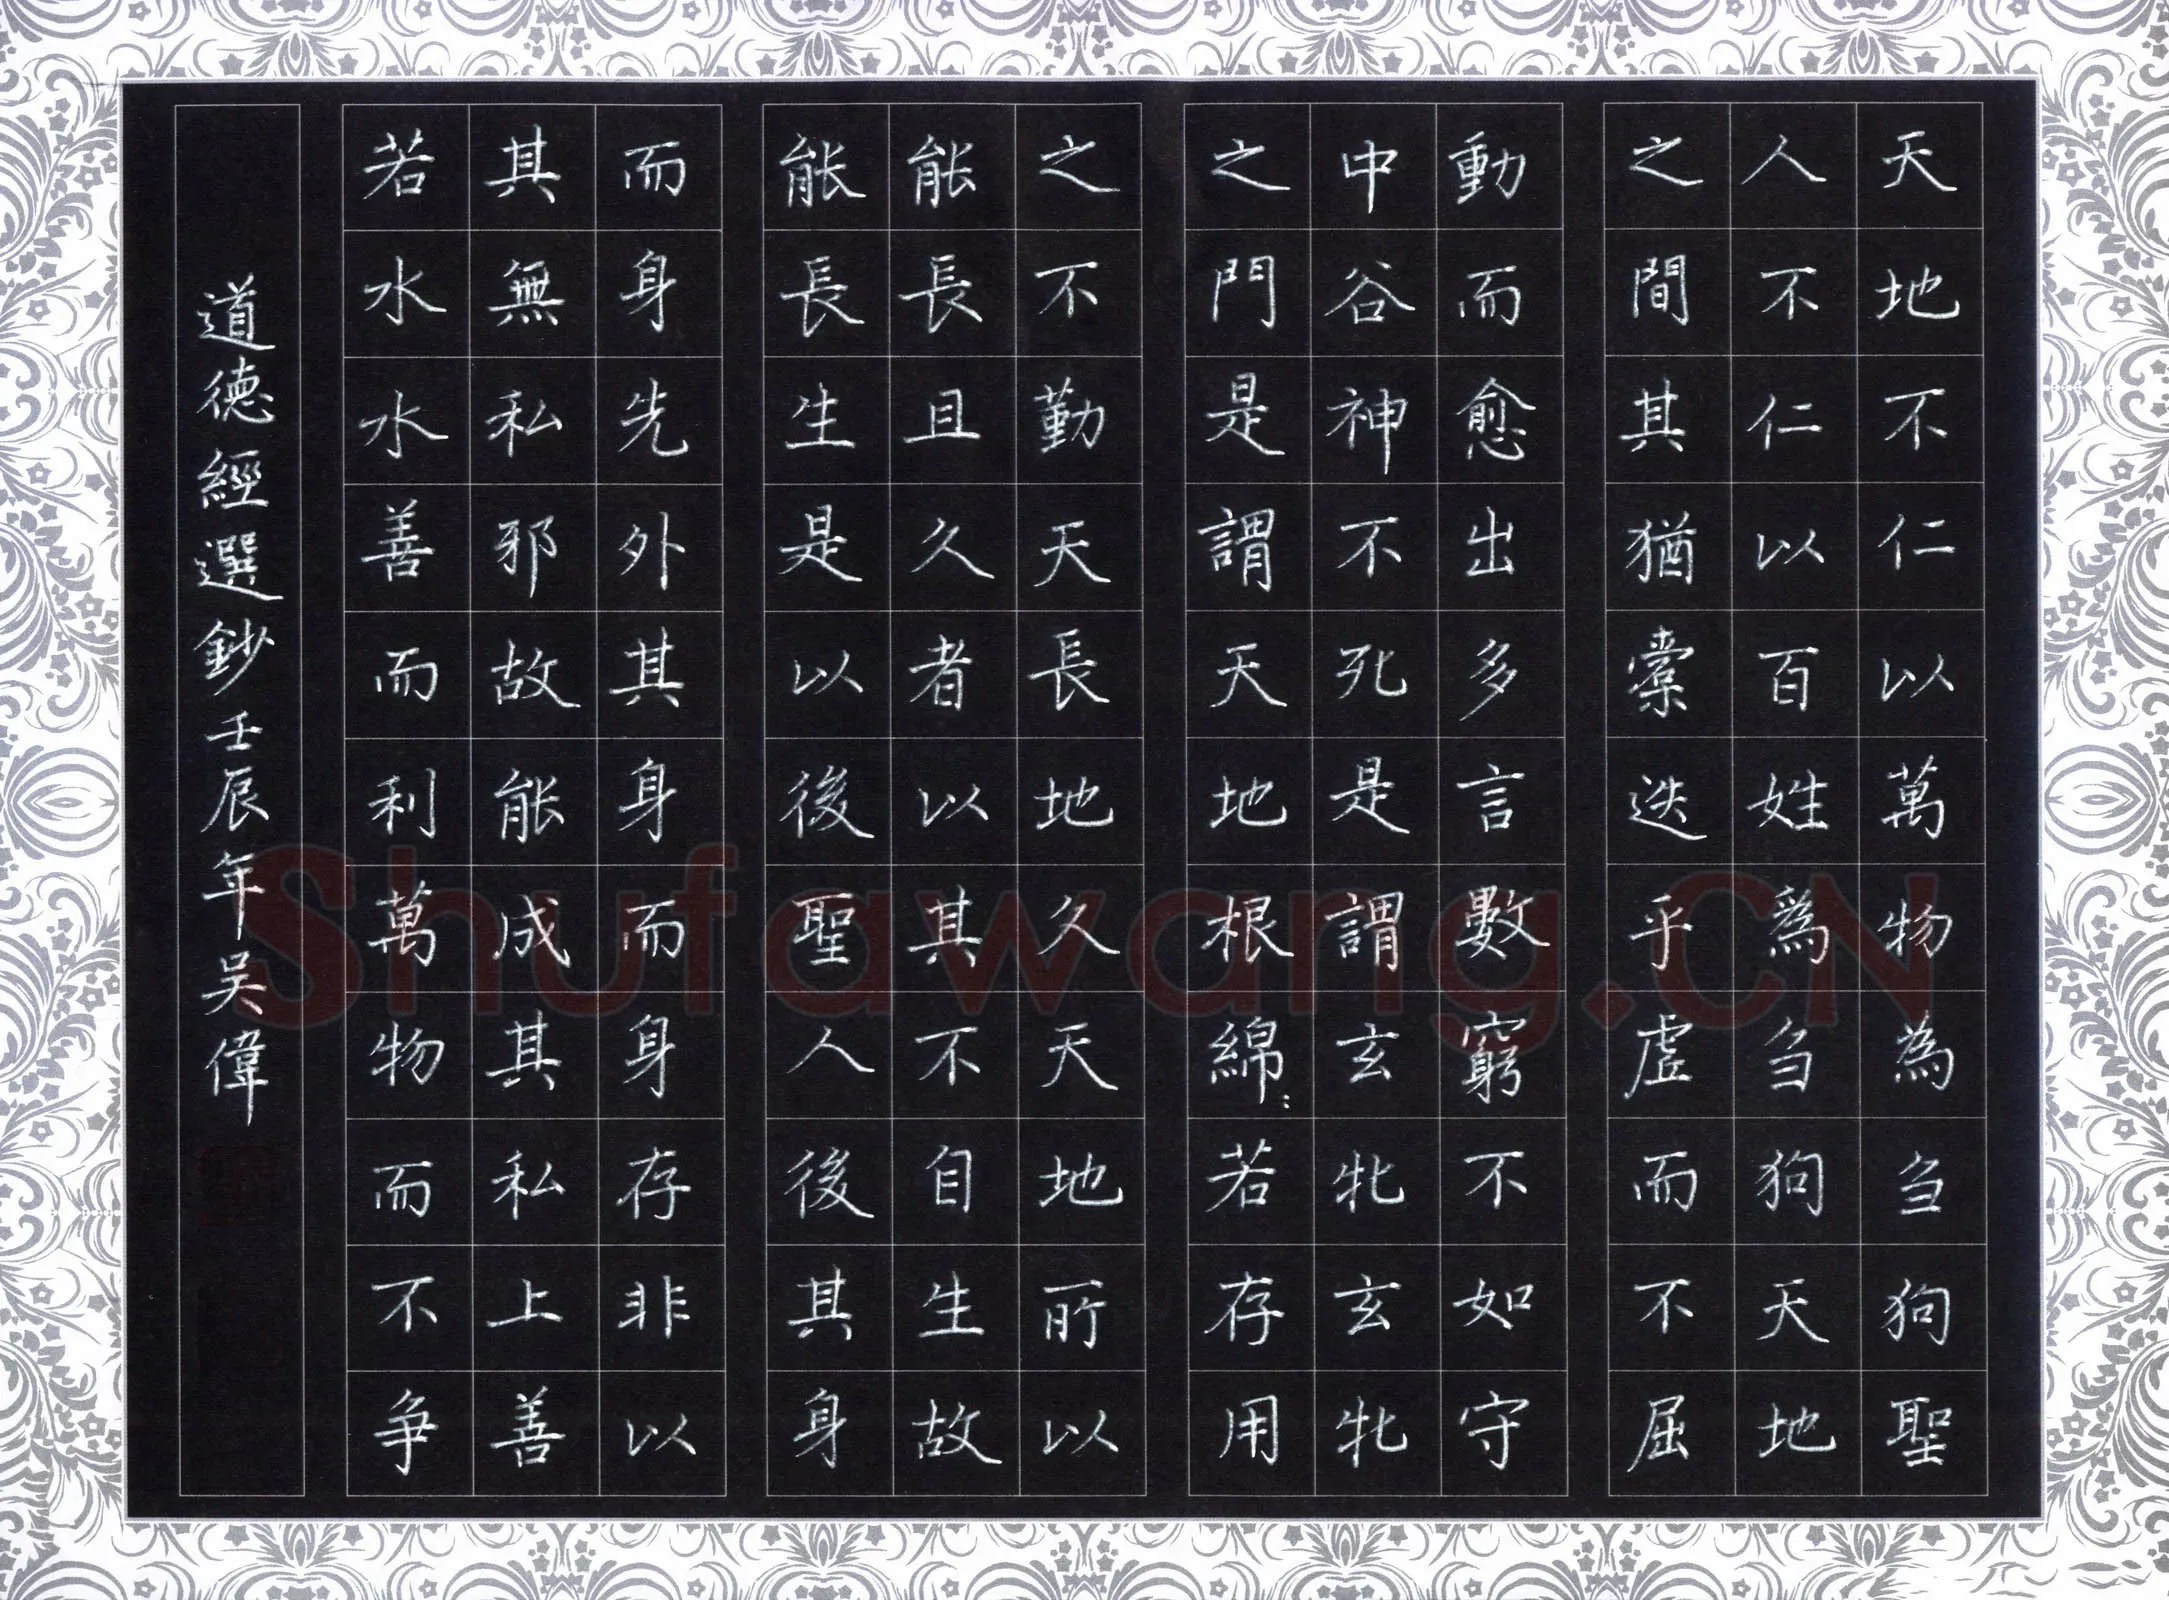 天地不仁以萬物為刍狗聖
人不仁以百姓爲刍狗天地
之間其猶橐迭乎虚而不屈
動而愈出多言數窮不如守
中谷神不死是謂玄牝玄牝
之門是謂天地根綿:若存用
之不勤天長地久天地所以
能長且久者以其不自生故
能長生是以後聖人後其身
而身先外其身而身存非以
其無私邪故能成其私上善
若水水善而利萬物而不争
道徳經選鈔壬辰年吴偉
Shufawang.CN